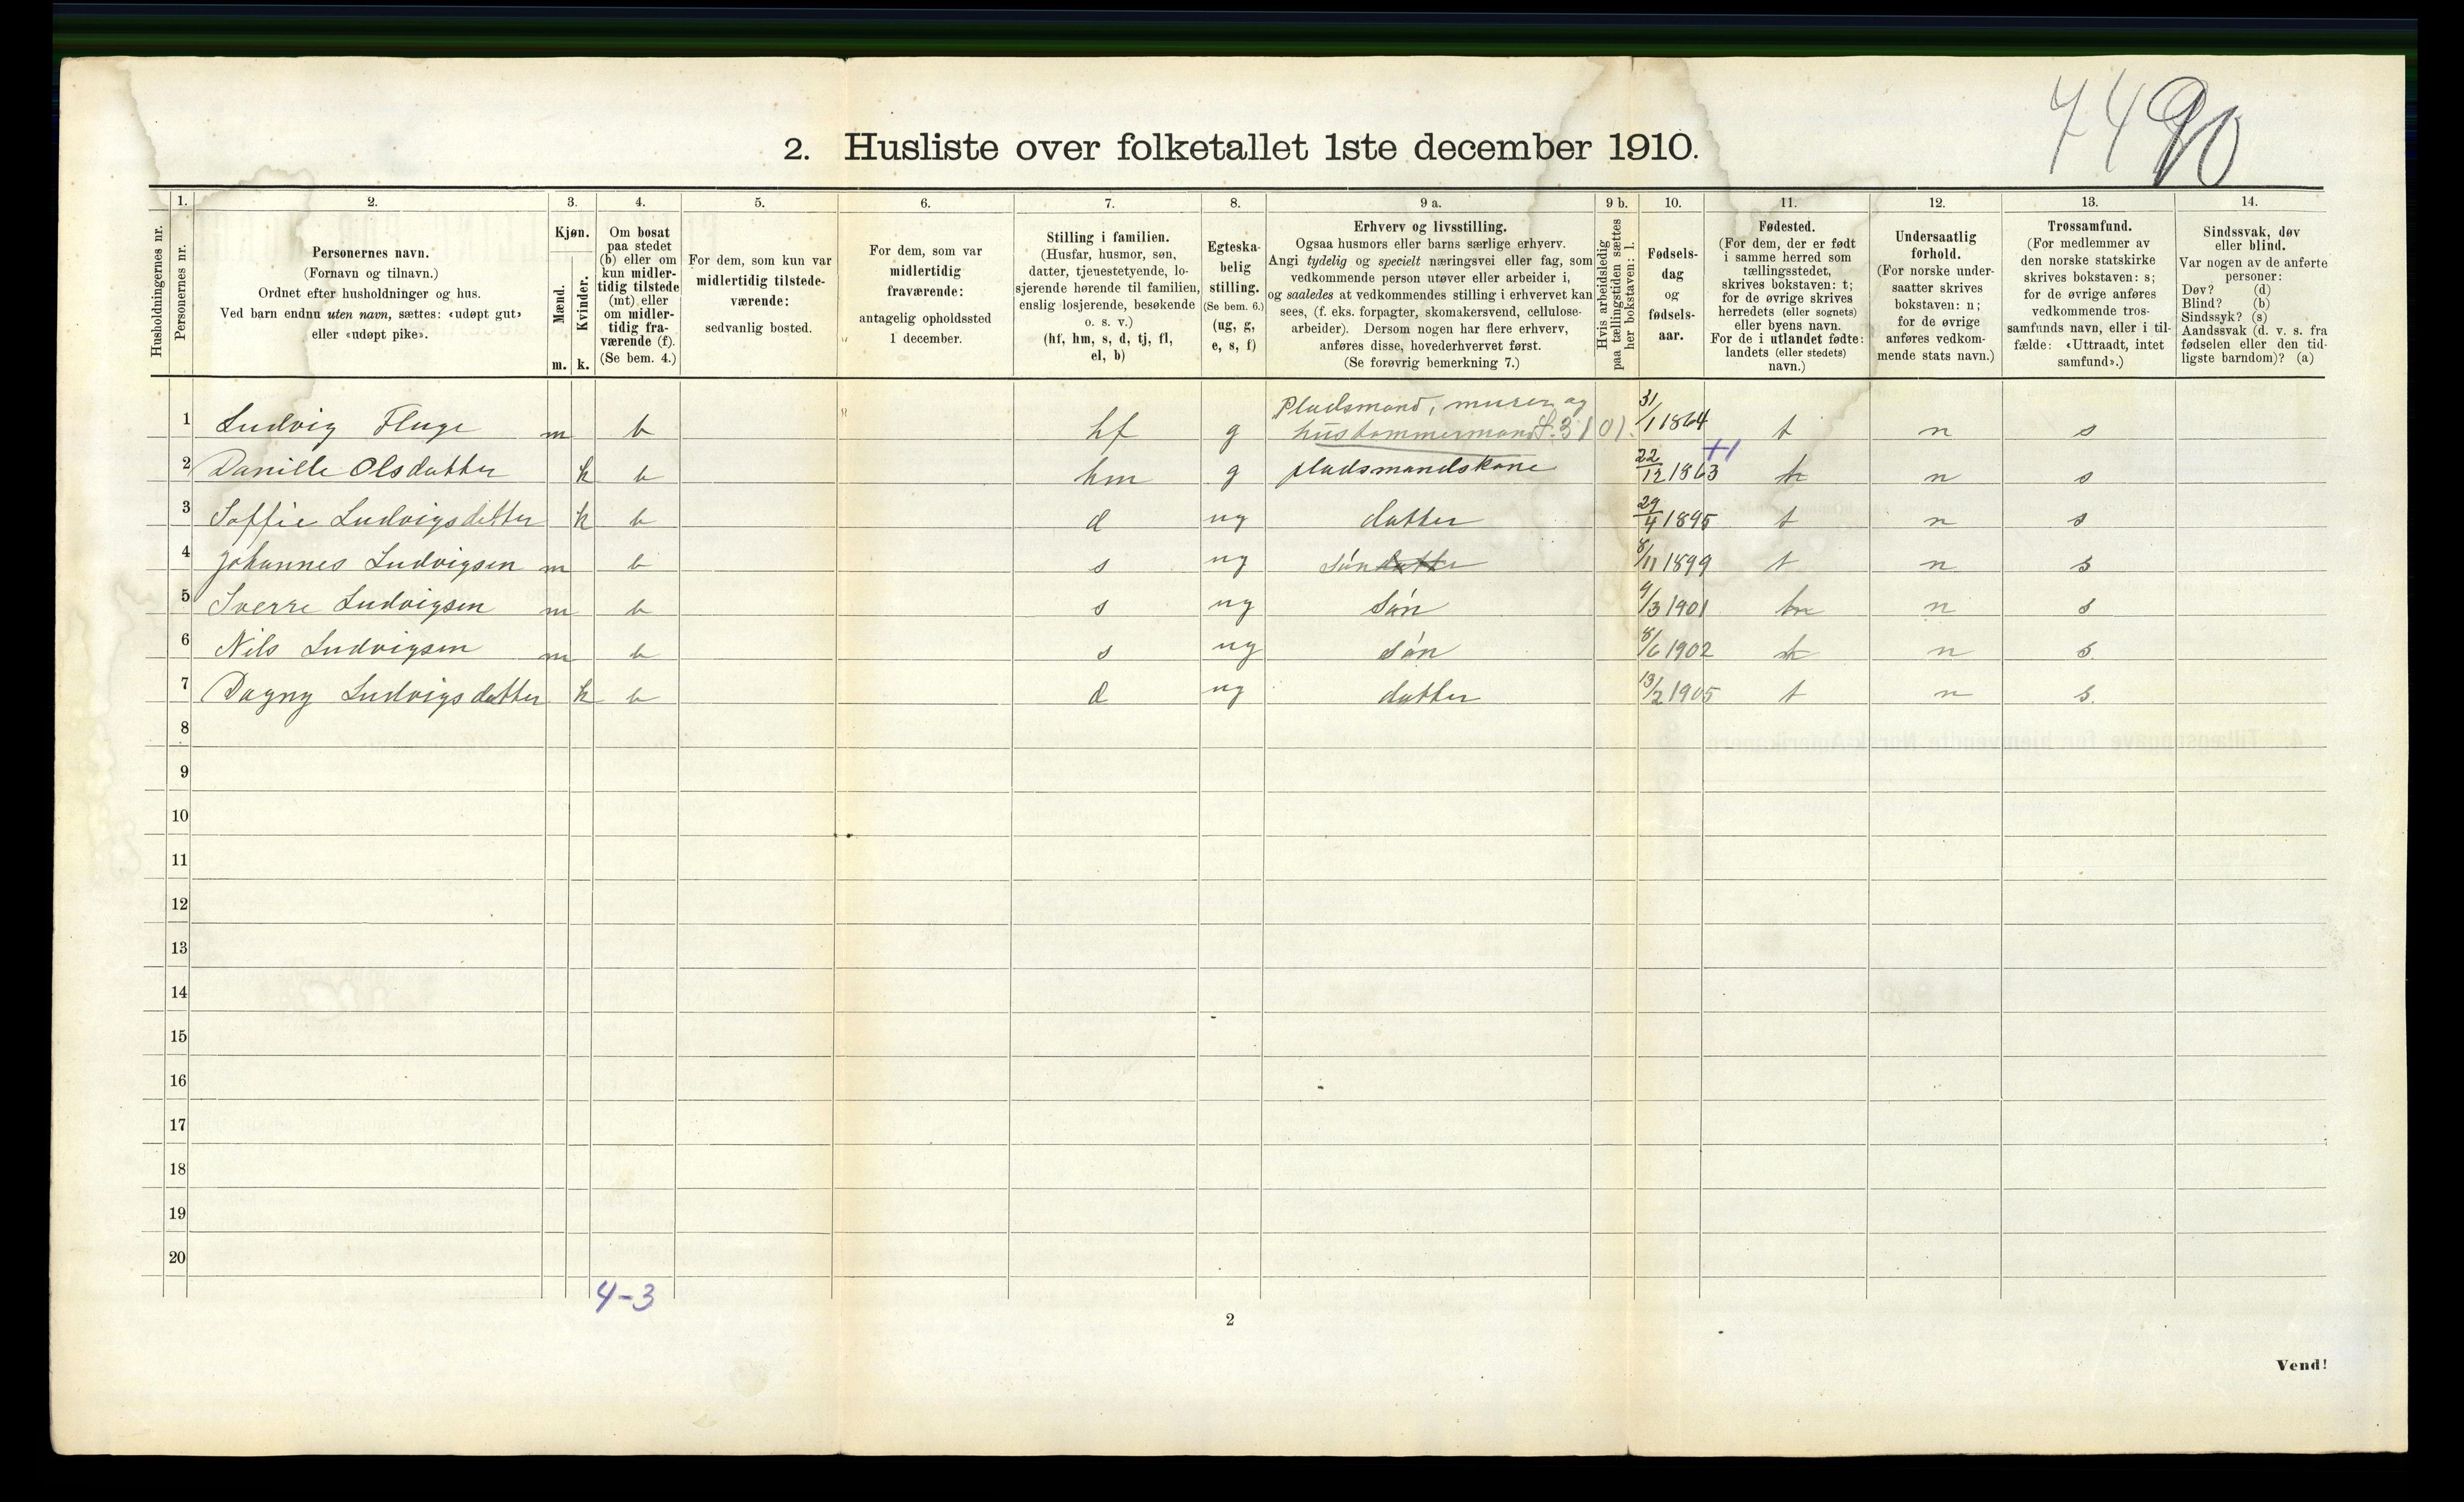 7490
2. Husliste over folketallet 1ste december 1910.
Husholdningernes nr.
1.
Personernes nr.
2.
Personernes navn.
(Fornavn og tilnavn.)
Ordnet efter husholdninger og hus.
Ved barn endnu uten navn, sættes: «udøpt gut»
eller «udøpt pike».
3.
Kjøn.
Mænd.
Kvinder.
m. k.
4.
Om bosat
paa stedet
(b) eller om
kun midler-
tidig tilstede
(mt) eller
om midler-
tidig fra-
værende (f).
(Se bem. 4.)
5.
For dem, som kun var
midlertidig tilstede-
værende:
sedvanlig bosted.
6.
For dem, som var
midlertidig
fraværende:
antagelig opholdssted
1 december.
7.
Stilling i familien.
(Husfar, husmor, søn,
datter, tjenestetyende, lo-
sjerende hørende til familien,
enslig losjerende, besøkende
o. s. v.)
(hf, hm, s, d, tj, fl,
el, b)
8.
Egteska-
belig
stilling.
(Se bem. 6.)
(ug, g,
e, s, f)
9 a.
Erhverv og livsstilling.
Ogsaa husmors eller barns særlige erhverv.
Angi tydelig og specielt næringsvei eller fag, som
vedkommende person utøver eller arbeider i,
og saaledes at vedkommendes stilling i erhvervet kan
sees, (f. eks. forpagter, skomakersvend, cellulose-
arbeider). Dersom nogen har flere erhverv,
anføres disse, hovederhvervet først.
(Se forøvrig bemerkning 7.)
9 b.
Hvis arbeidsledig
paa tællingstiden sættes
her bokstaven: l.
10.
Fødsels-
dag
og
fødsels-
aar.
11.
Fødested.
(For dem, der er født
i samme herred som
tællingsstedet,
skrives bokstaven: t;
for de øvrige skrives
herredets (eller sognets)
eller byens navn.
For de i utlandet fødte:
landets (eller stedets)
navn.)
12.
Undersaatlig
forhold.
(For norske under-
saatter skrives
bokstaven: n;
for de øvrige
anføres vedkom-
mende stats navn.)
13.
Trossamfund.
(For medlemmer av
den norske statskirke
skrives bokstaven: s;
for de øvrige anføres
vedkommende tros-
samfunds navn, eller i til-
fælde: «Uttraadt, intet
samfund».)
14.
Sindssvak, døv
eller blind.
Var nogen av de anførte
personer:
Døv? (d)
Blind? (b)
Sindssyk? (s)
Aandssvak (d. v. s. fra
fødselen eller den tid-
ligste barndom)? (a)
Pladsmand, murer og
1 Ludvig Fluge m b hf g hustømmermand 31/1 1864 t n s
2 Danille Olsdatter k b hm g pladsmandskone 22/12 1863 t n s
3 Soffie Ludvigsdatter k b d ug datter 29/4 1895 t n s
4 Johannes Ludvigsen m b s ug søn 8/11 1899 t n s
5 Sverre Ludvigsen m b s ug søn 9/3 1901 t n s
6 Nils Ludvigsen m b s ug søn 8/6 1902 t n s.
7 Dagny Ludvigsdatter k b d ug datter 13/2 1905 t n s.
8
9
10
11
12
13
14
15
16
17
18
19
20
4-3
2
Vend!